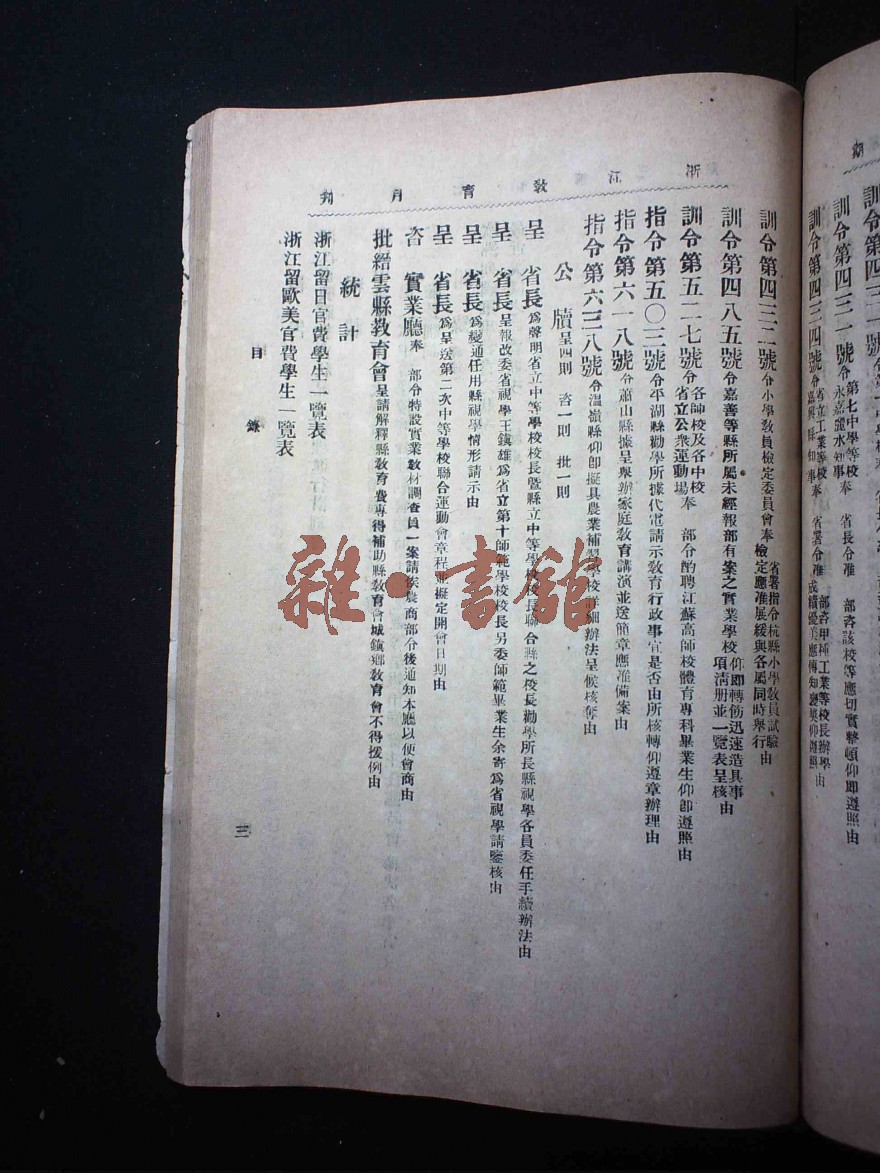 浙江教育月刊
訓令第四三一號令第七中學等校永嘉麗水知事奉 省長令准 部咨該校等應切實整頓仰即遵照由
訓令第四三四號令省立工業等校嘉興縣知事奉 省署令准 部咨甲種工業等校長辦學成績優美應傳知褒獎仰遵照由
訓令第四三二號令小學教員檢定委員會奉 省署指令杭縣小學教員試驗檢定應准展緩與各屬同時舉行由
訓令第四八五號令嘉善等縣所屬未經報部有案之實業學校仰即轉飭迅速造具事項清册並一覽表呈核由
訓令第五二七號令各師校及各中校省立公衆運動場奉 部令酌聘江蘇高師校體育專科畢業生仰卽遵照由
指令第五〇三號令平湖縣勸學所據代電請示敎育行政事宜是否由所核轉仰遵章辦理由
指令第六一八號令蕭山縣據呈舉辦家庭敎育講演並送簡章應准備案由
指令第六三八號令溫嶺縣仰卽擬具農業補習學校詳細辦法呈候核奪由
公牘呈四則 咨一則 批一則
呈 省長爲聲明省立中等學校校長暨縣立中等學校校長聯合縣之校長勸學所長縣視學各員委任手續辦法由
呈 省長呈報改委省視學王鎭雄爲省立第十師範學校校長另委師範畢業生余寄爲省視學請鑒核由
呈 省長爲變通任用縣視學情形請示由
呈 省長爲呈送第二次中等學校聯合運動會章程並擬定開會日期由
咨 實業廳奉 部令特設實業敎材調查員一案請俟農商部令後通知本廳以便會商由
批縉雲縣敎育會呈請解釋縣敎育費專得補助縣敎育會城鎭鄉敎育會不得援例由
統計
浙江留日官費學生一覽表
浙江留歐美官費學生一覽表
目錄
三
雜·書館